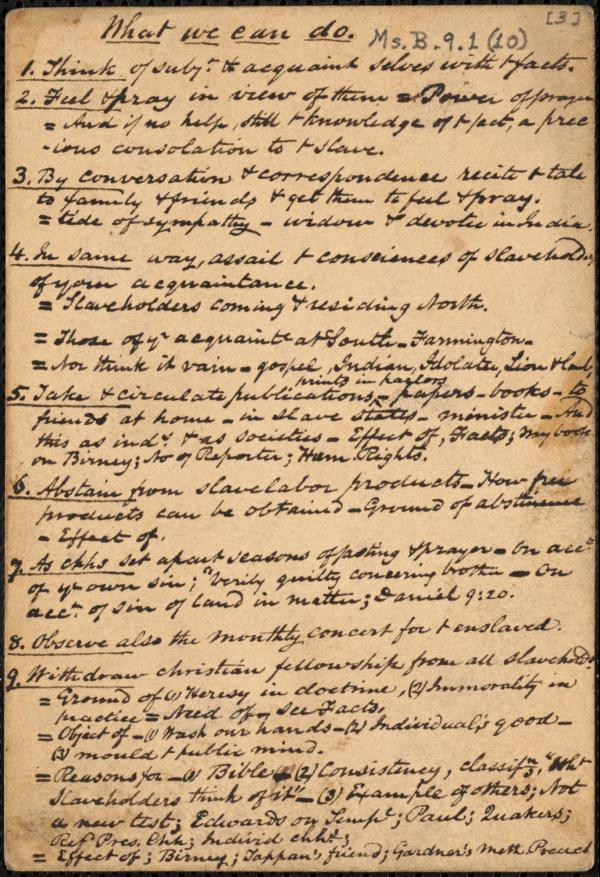 [3]
What we can do. Ms. B. 9.1 (10)
1. Think of subjt. & acquaint selves with t facts.
2. Feel & pray in view of them = Power of prayer
= And if no help, still t knowledge of t fact, a prec
-ious consolation to t slave.
3. By conversation & correspondence recite t tale
to family & friends & get them to feel & pray.
= tide of sympathy – widow & devotee in India.
4. In same way, assail t consciences of slaveholders
of your acquaintance.
= Slaveholders coming & residing North.
= Those of yr acquaintce at South – Farmington –
= Nor think it vain – gospel, Indian, Idolater, Lion & Lamb,
prints in parlors
5. Take & circulate publications, – papers – books – to
friends at home – in slave states – minister – And
this as inds. & as societies – Effect of, Facts; my book
on Birney; No of Reporter; Hum. Rights.
6. Abstain from slavelabor products – How free
products can be obtained – Ground of abstinence
– Effect of.
7. As chhs set apart seasons of fasting & prayer – On acct.
of yr own sin; "Verily guilty concering brother – On
acct. of sin of land in matter; Daniel 9:20.
8. Observe also the monthly concert for t enslaved.
9. Withdraw christian fellowship from all slavehold.
= Ground of (1) Heresy in doctrine, (2) Immorality in
practice = Need of, see Facts.
= Object of – (1) Wash our hands – (2) Individual's good –
(3) mould t public mind.
= Reasons for – (1) Bible (2) Consistency, classifn, "Wht
Slaveholders think of it" – (3) Example of others; Not
a new test; Edwards on Tempe; Paul; Quakers;
Ref Pres. Chh; Individ chhs;
= Effect of; Birney; Tappan's friend; Gardner's Meth. Preach